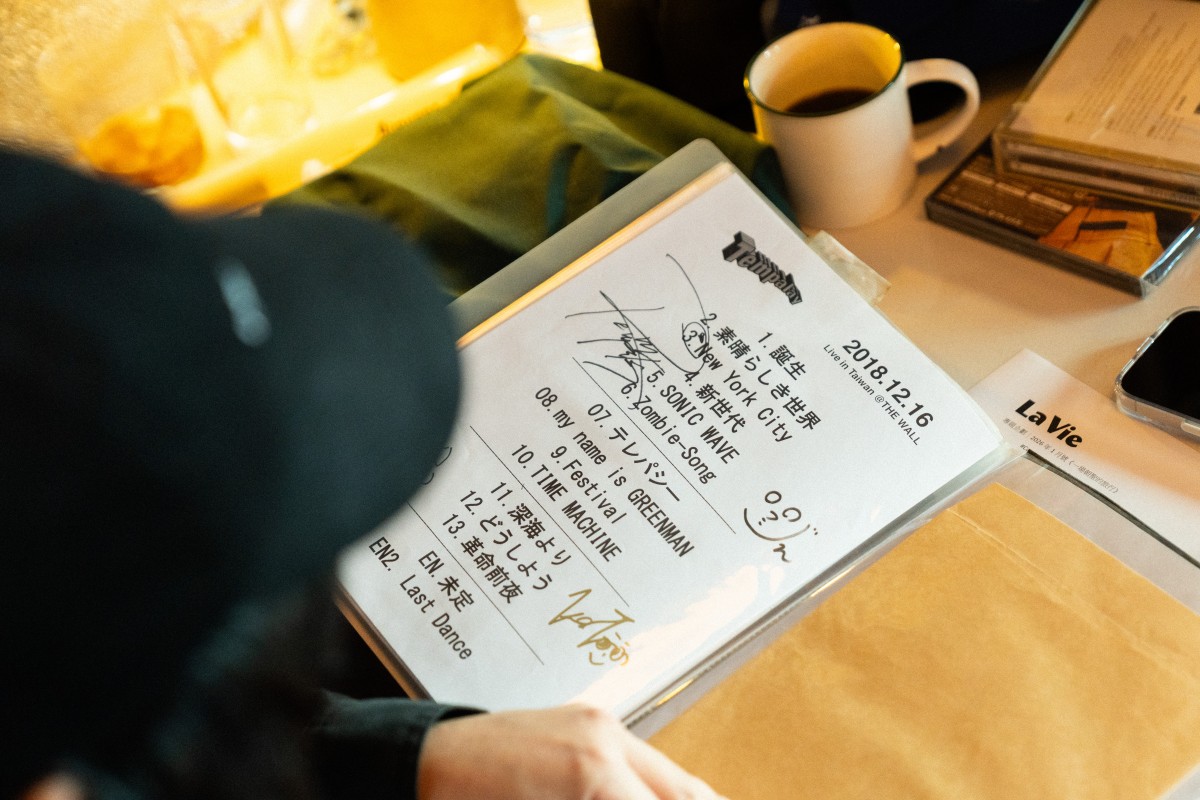 Tempalay
2018.12.16
Live in Taiwan @THE WALL
1. 誕生
2. 素晴らしき世界
3. New York City
4. 新世代
5. SONIC WAVE
6. Zombie-Song
07. テレパシー
08. my name is GREENMAN
9. Festival
10. TIME MACHINE
11. 深海より
12. どうしよう
13. 革命前夜
EN. 未定
EN2. Last Dance
La Vie